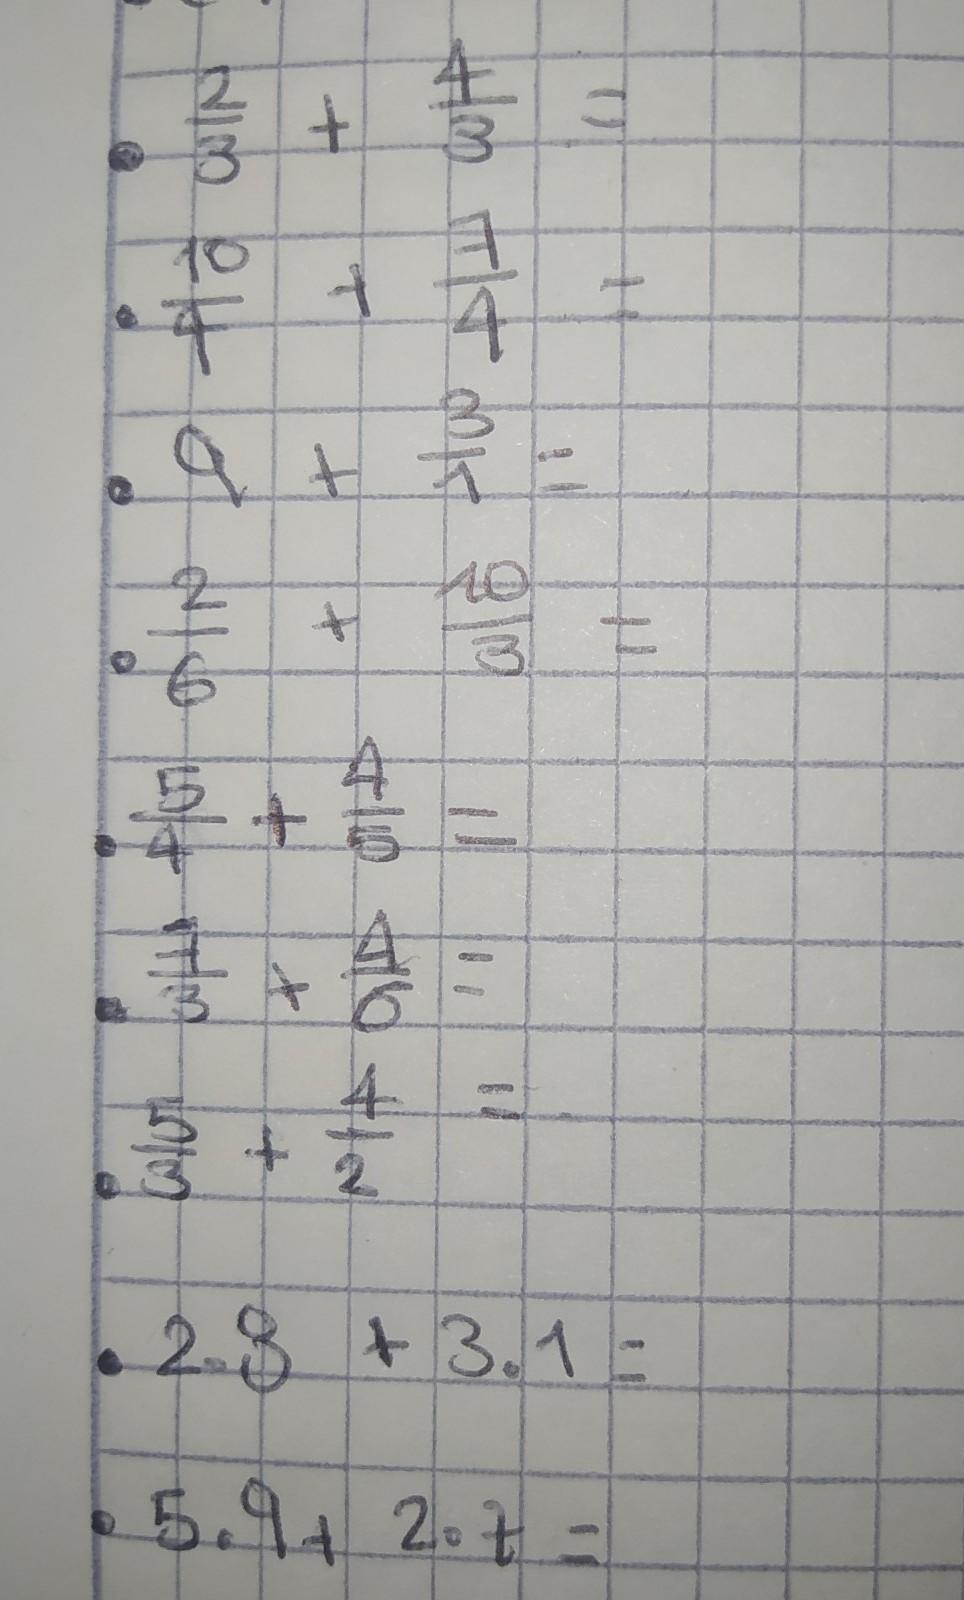 2/3 + 4/3 =
10/4 + 7/4 =
9 + 3/1 =
2/6 + 10/3 =
5/4 + 4/5 =
7/3 + 4/6 =
5/3 + 4/2 =
2.8 + 3.1 =
5.9 + 2.7 =